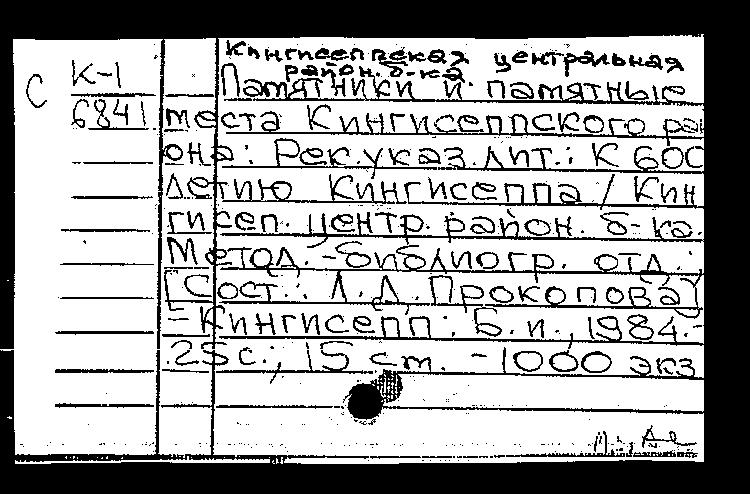 Кингисеппская центральная
район. б-ка
С К-1
6841
Памятники и памятные
места Кингисеппского рай
она: Рек. указ. лит.: К 600
летию Кингисеппа / Кин
гисеп. центр. район. б-ка.
Метод.-библиогр. отд.;
[Сост.: Л. Д. Прокопова]
- Кингисепп: Б. и., 1984.-
25 с.; 15 см. - 1000 экз